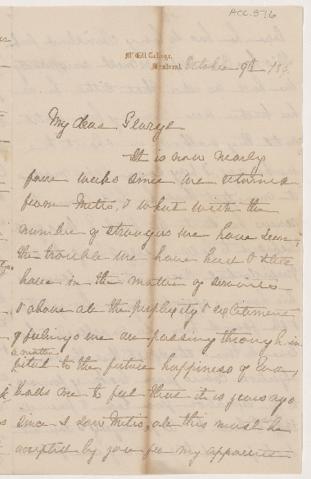 ACC.576
McGill College,
Montreal, October 9th /85
My dear George
It is now nearly
four weeks since we returned
from Metis, & what with the
number of strangers we have seen,
the trouble we have had & still
have in the matter of servants
& above all the perplexity & excitement
of feelings we are passing through in
a matter
to the future happiness of Eva,
leads me to feel that it is years ago
since I saw Metis, all this must be
accepted by you for my apparent